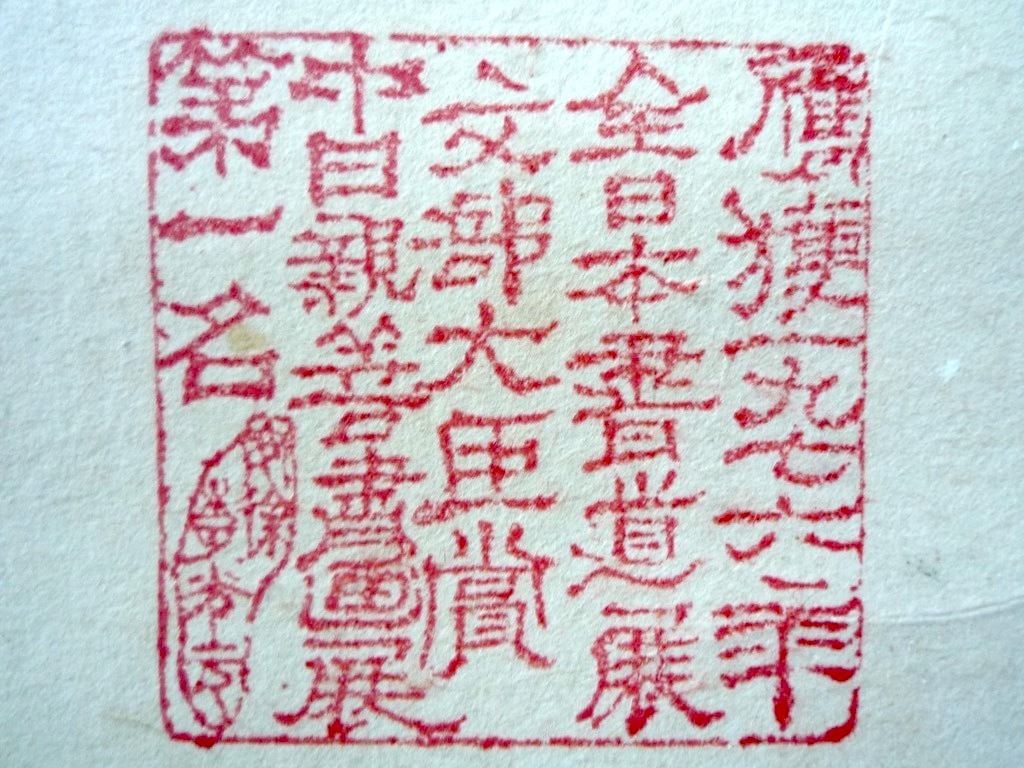 膺捷一九七六年
全日本書道展
文部大臣賞
中日親善書畫展
第一名